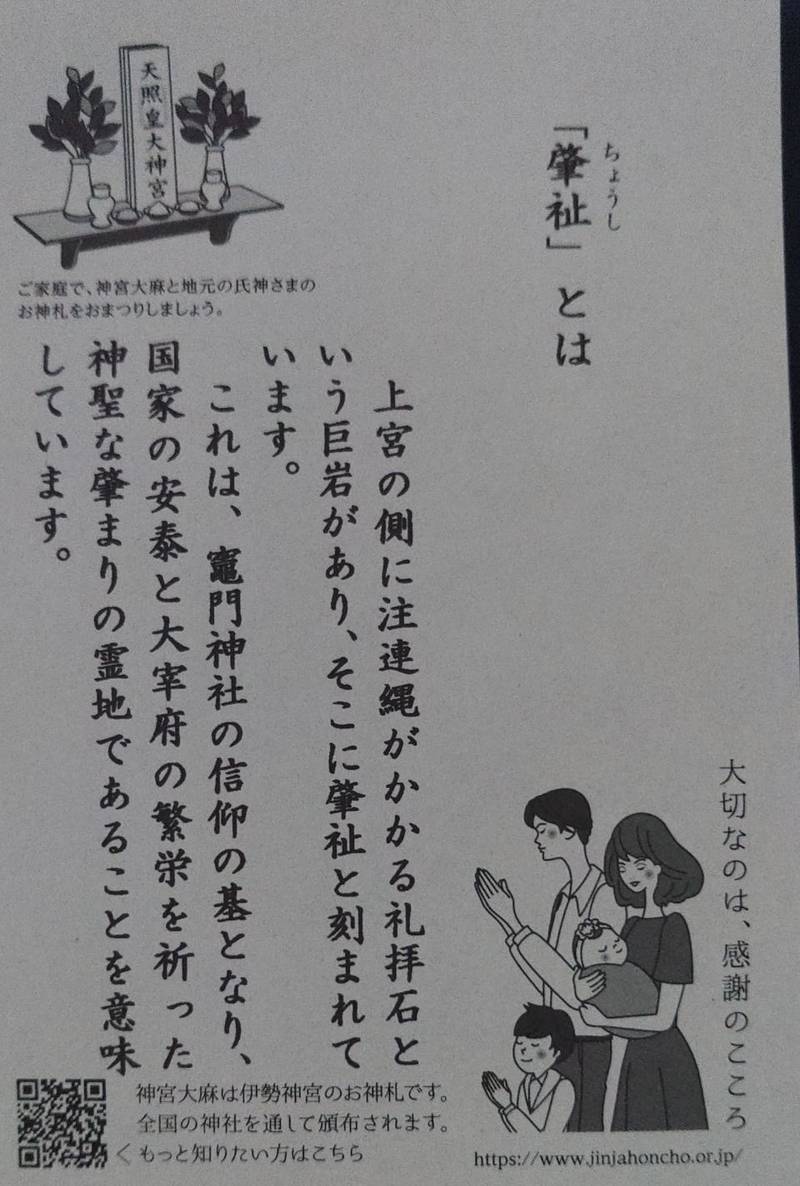 「肇祉」とは
ちょうし
上宮の側に注連縄がかかる礼拝石と
いう巨岩があり、そこに肇祉と刻まれて
います。
これは、竈門神社の信仰の基となり、
国家の安泰と大宰府の繁栄を祈った
神聖な肇まりの霊地であることを意味
しています。
天照皇大神宮
ご家庭で、神宮大麻と地元の氏神さまの
お神札をおまつりしましょう。
大切なのは、感謝のこころ
神宮大麻は伊勢神宮のお神札です。
全国の神社を通して頒布されます。
＜もっと知りたい方はこちら
https://www.jinjahoncho.or.jp/